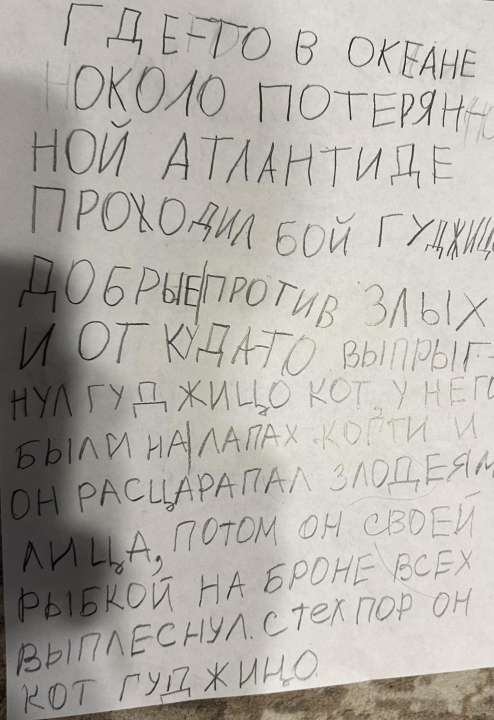 ГДЕ-ТО В ОКЕАНЕ
ОКОЛО ПОТЕРЯН
НОЙ АТЛАНТИДЕ
ПРОХОДИЛ БОЙ ГУДЖИЦ
ДОБРЫЕ|ПРОТИВ ЗЛЫХ
И ОТ КУДА-ТО ВЫПРЫГ-
НУЛ ГУДЖИЦО КОТ, У НЕГО
БЫЛИ НА|ЛАПАХ КОГТИ И
ОН РАСЦАРАПАЛ ЗЛОДЕЯМ
ЛИЦА, ПОТОМ ОН СВОЕЙ
РЫБКОЙ НА БРОНЕ ВСЕХ
ВЫПЛЕСНУЛ. С ТЕХ ПОР ОН
КОТ ГУДЖИЦО